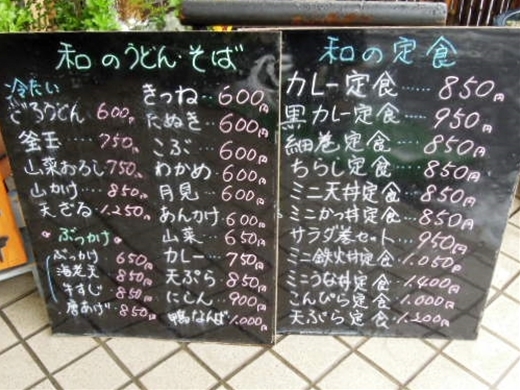 和のうどん・そば
冷たい
ざるうどん 600円
釜玉 750円
山菜おろし 750円
山かけ‥‥ 850円
天ざる 1,250円
ぶっかけ
ぶっかけ 650円
海老天 850円
牛すじ 850円
唐あげ 850円
きつね‥ 600円
たぬき‥ 600円
こぶ‥ 600円
わかめ‥ 600円
月見‥ 600円
あんかけ 600円
山菜‥ 650円
カレー‥ 750円
天ぷら‥ 850円
にしん‥ 900円
鴨なんば‥ 1,000円
和の定食
カレー定食‥‥ 850円
黒カレー定食‥ 950円
細巻定食‥ 850円
ちらし定食‥ 850円
ミニ天丼定食‥ 850円
ミニかつ丼定食‥ 850円
サラダ巻セット‥ 950円
ミニ鉄火丼定食‥ 1,050円
ミニうな丼定食‥ 1,400円
こんぴら定食‥ 1,000円
天ぷら定食‥ 1,200円